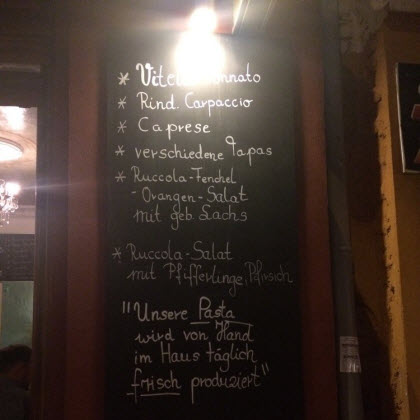 * Vitello Tonnato
* Rind. Carpaccio
* Caprese
* verschiedene Tapas
* Ruccola-Fenchel
- Orangen-Salat
mit geb. Lachs
* Ruccola-Salat
mit Pfifferlinge, Pfirsich
"Unsere Pasta
wird von Hand
im Haus täglich
frisch produziert"